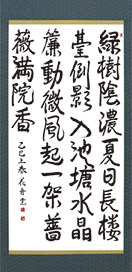 綠樹陰濃夏日長樓
臺倒影入池塘水晶
簾動微風起一架薔
薇滿院香